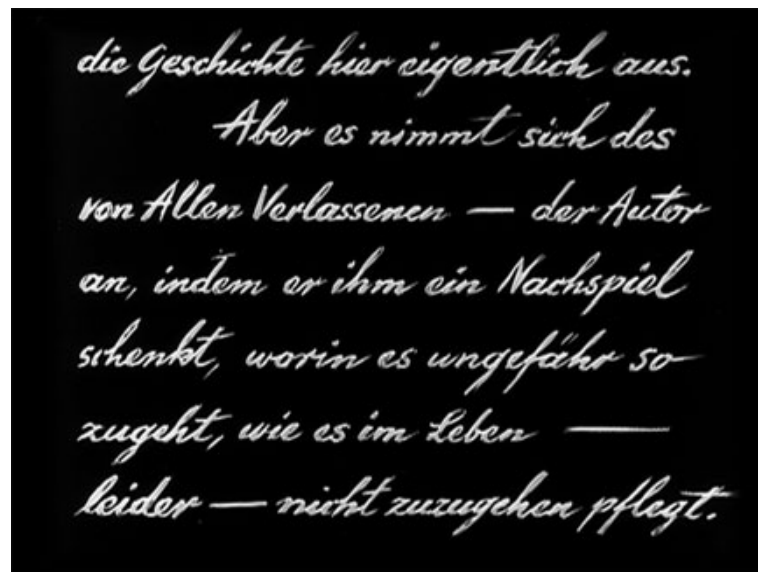 die Geschichte hier eigentlich aus.
Aber es nimmt sich des
von Allen Verlassenen — der Autor
an, indem er ihm ein Nachspiel
schenkt, worin es ungefähr so
zugeht, wie es im Leben —
leider — nicht zuzugehen pflegt.